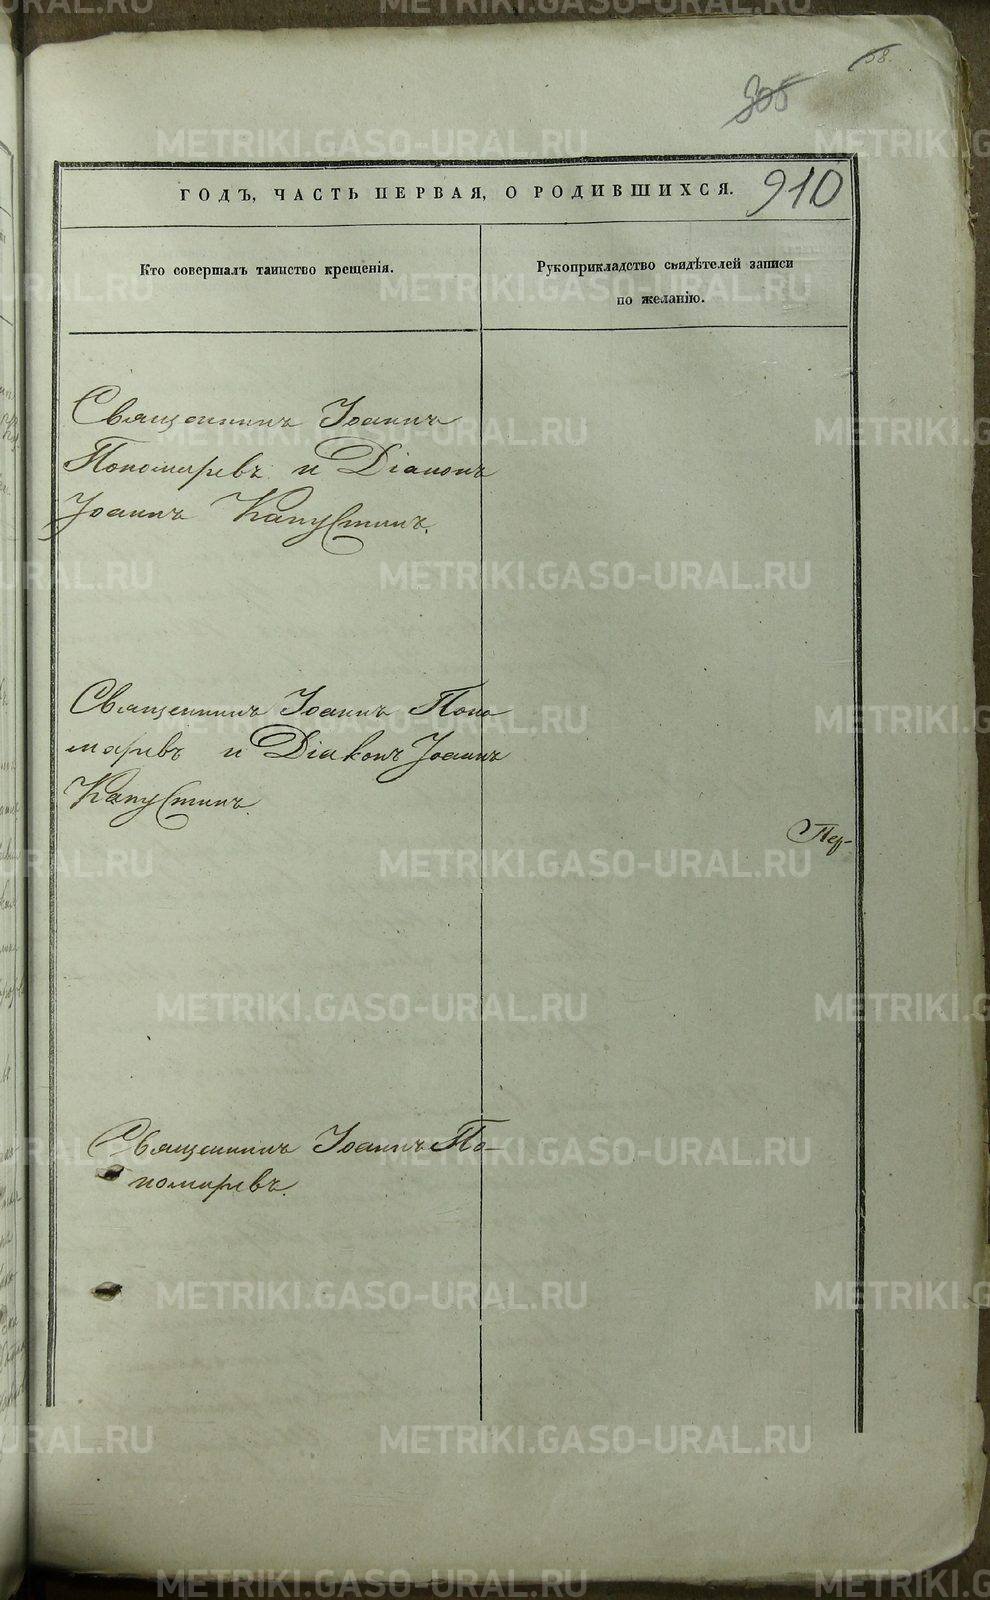 58.
305
910
ГОДЪ, ЧАСТЬ ПЕРВАЯ, О РОДИВШИХСЯ.
Кто совершалъ таинство крещенія.
Рукоприкладство свидѣтелей записи
по желанію.
Священникъ Іоаннъ
Пономаревъ и Діаконъ
Іоаннъ Капустинъ.
Священникъ Іоаннъ Поно
маревъ и Діаконъ Іоаннъ
Капустинъ.
Священникъ Іоаннъ По-
номаревъ.
METRIKI.GASO-URAL.RU